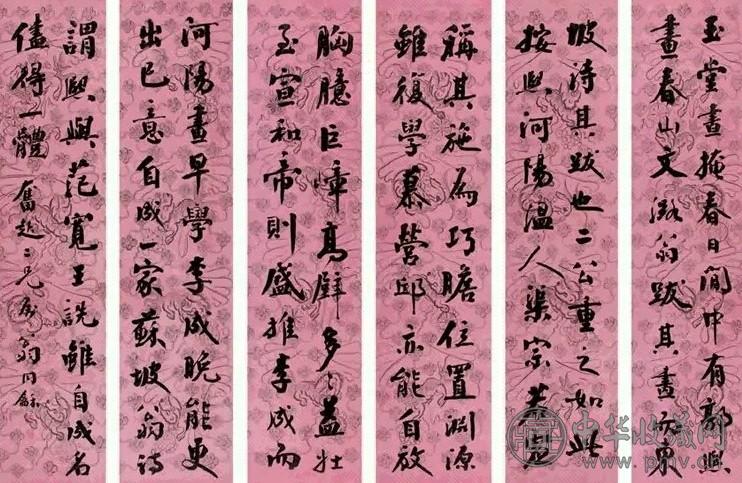 玉堂晝掩春日閒中有郭熙
畫春山文潞翁跋其畫而東
坡詩其跋也二公重之如此
按熙河陽溫人
稱其施為巧贍位置淵源
雖復學慕營邱亦能自放
胸臆巨嶂高壁多々益壯
至宣和帝則盛推李成而
河陽畫早學李成晚能更
出己意自成一家蘇坡翁詩
謂熙與范寬王詵雖自成名
僅得一體 二兄屬 翁同龢
中华收藏网
www.pmv.cn